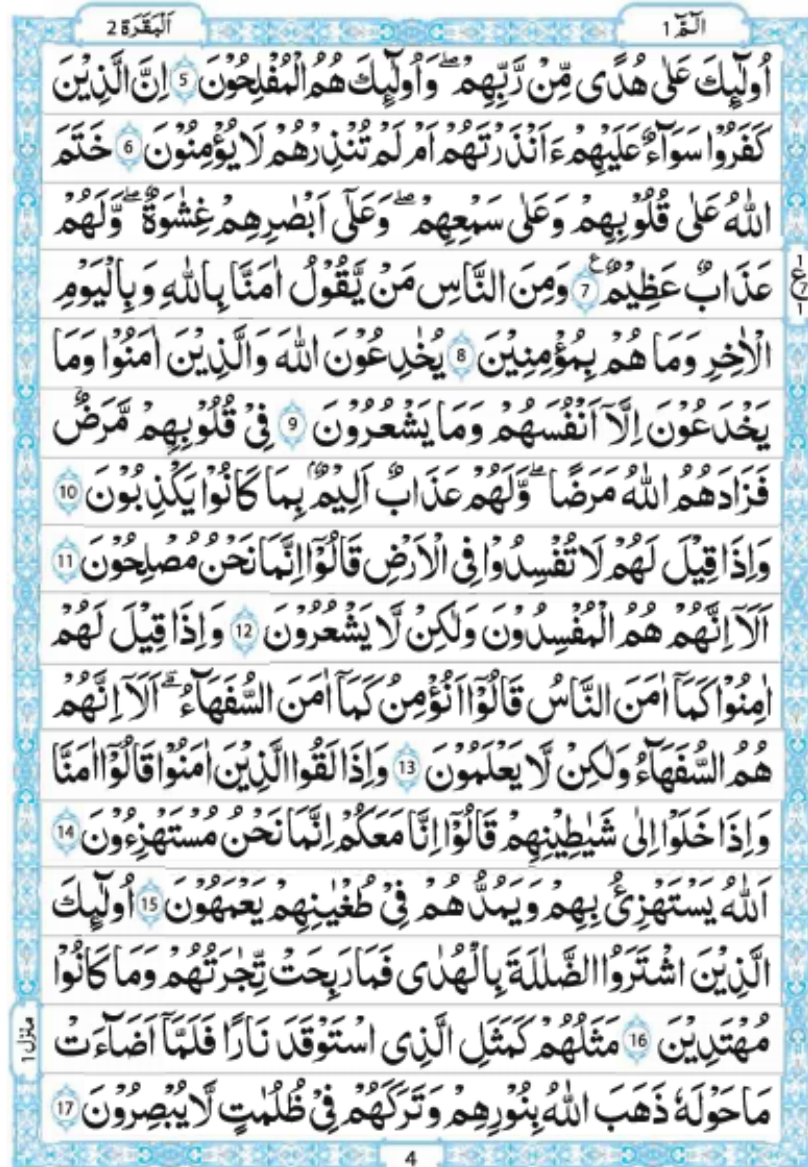 الٓمّٓ 1
اَلْبَقَرَة 2
اُولٰٓئِكَ عَلٰى هُدًى مِّنْ رَّبِّهِمْ ۖ وَاُولٰٓئِكَ هُمُ الْمُفْلِحُوْنَ 5 اِنَّ الَّذِيْنَ
كَفَرُوْا سَوَآءٌ عَلَيْهِمْ ءَاَنْذَرْتَهُمْ اَمْ لَمْ تُنْذِرْهُمْ لَا يُؤْمِنُوْنَ 6 خَتَمَ
اللّٰهُ عَلٰى قُلُوْبِهِمْ وَعَلٰى سَمْعِهِمْ ۖ وَعَلٰٓى اَبْصٰرِهِمْ غِشٰوَةٌ ۖ وَّلَهُمْ
عَذَابٌ عَظِيْمٌ 7 ع وَمِنَ النَّاسِ مَنْ يَّقُوْلُ اٰمَنَّا بِاللّٰهِ وَبِالْيَوْمِ
1 ع 7 1
الْاٰخِرِ وَمَا هُمْ بِمُؤْمِنِيْنَ 8 يُخٰدِعُوْنَ اللّٰهَ وَالَّذِيْنَ اٰمَنُوْا وَمَا
يَخْدَعُوْنَ اِلَّآ اَنْفُسَهُمْ وَمَا يَشْعُرُوْنَ 9 فِيْ قُلُوْبِهِمْ مَّرَضٌ
فَزَادَهُمُ اللّٰهُ مَرَضًا ۖ وَّلَهُمْ عَذَابٌ اَلِيْمٌۢ بِمَا كَانُوْا يَكْذِبُوْنَ 10
وَاِذَا قِيْلَ لَهُمْ لَا تُفْسِدُوْا فِى الْاَرْضِ قَالُوْٓا اِنَّمَا نَحْنُ مُصْلِحُوْنَ 11
اَلَآ اِنَّهُمْ هُمُ الْمُفْسِدُوْنَ وَلٰكِنْ لَّا يَشْعُرُوْنَ 12 وَاِذَا قِيْلَ لَهُمْ
اٰمِنُوْا كَمَآ اٰمَنَ النَّاسُ قَالُوْٓا اَنُؤْمِنُ كَمَآ اٰمَنَ السُّفَهَآءُ ۗ اَلَآ اِنَّهُمْ
هُمُ السُّفَهَآءُ وَلٰكِنْ لَّا يَعْلَمُوْنَ 13 وَاِذَا لَقُوا الَّذِيْنَ اٰمَنُوْا قَالُوْٓا اٰمَنَّا
وَاِذَا خَلَوْا اِلٰى شَيٰطِيْنِهِمْ قَالُوْٓا اِنَّا مَعَكُمْ اِنَّمَا نَحْنُ مُسْتَهْزِءُوْنَ 14
اَللّٰهُ يَسْتَهْزِئُ بِهِمْ وَيَمُدُّهُمْ فِيْ طُغْيٰنِهِمْ يَعْمَهُوْنَ 15 اُولٰٓئِكَ
الَّذِيْنَ اشْتَرَوُا الضَّلٰلَةَ بِالْهُدٰى فَمَا رَبِحَتْ تِّجٰرَتُهُمْ وَمَا كَانُوْا
مُهْتَدِيْنَ 16 مَثَلُهُمْ كَمَثَلِ الَّذِى اسْتَوْقَدَ نَارًا فَلَمَّآ اَضَآءَتْ
منزل 1
مَا حَوْلَهٗ ذَهَبَ اللّٰهُ بِنُوْرِهِمْ وَتَرَكَهُمْ فِيْ ظُلُمٰتٍ لَّا يُبْصِرُوْنَ 17
4